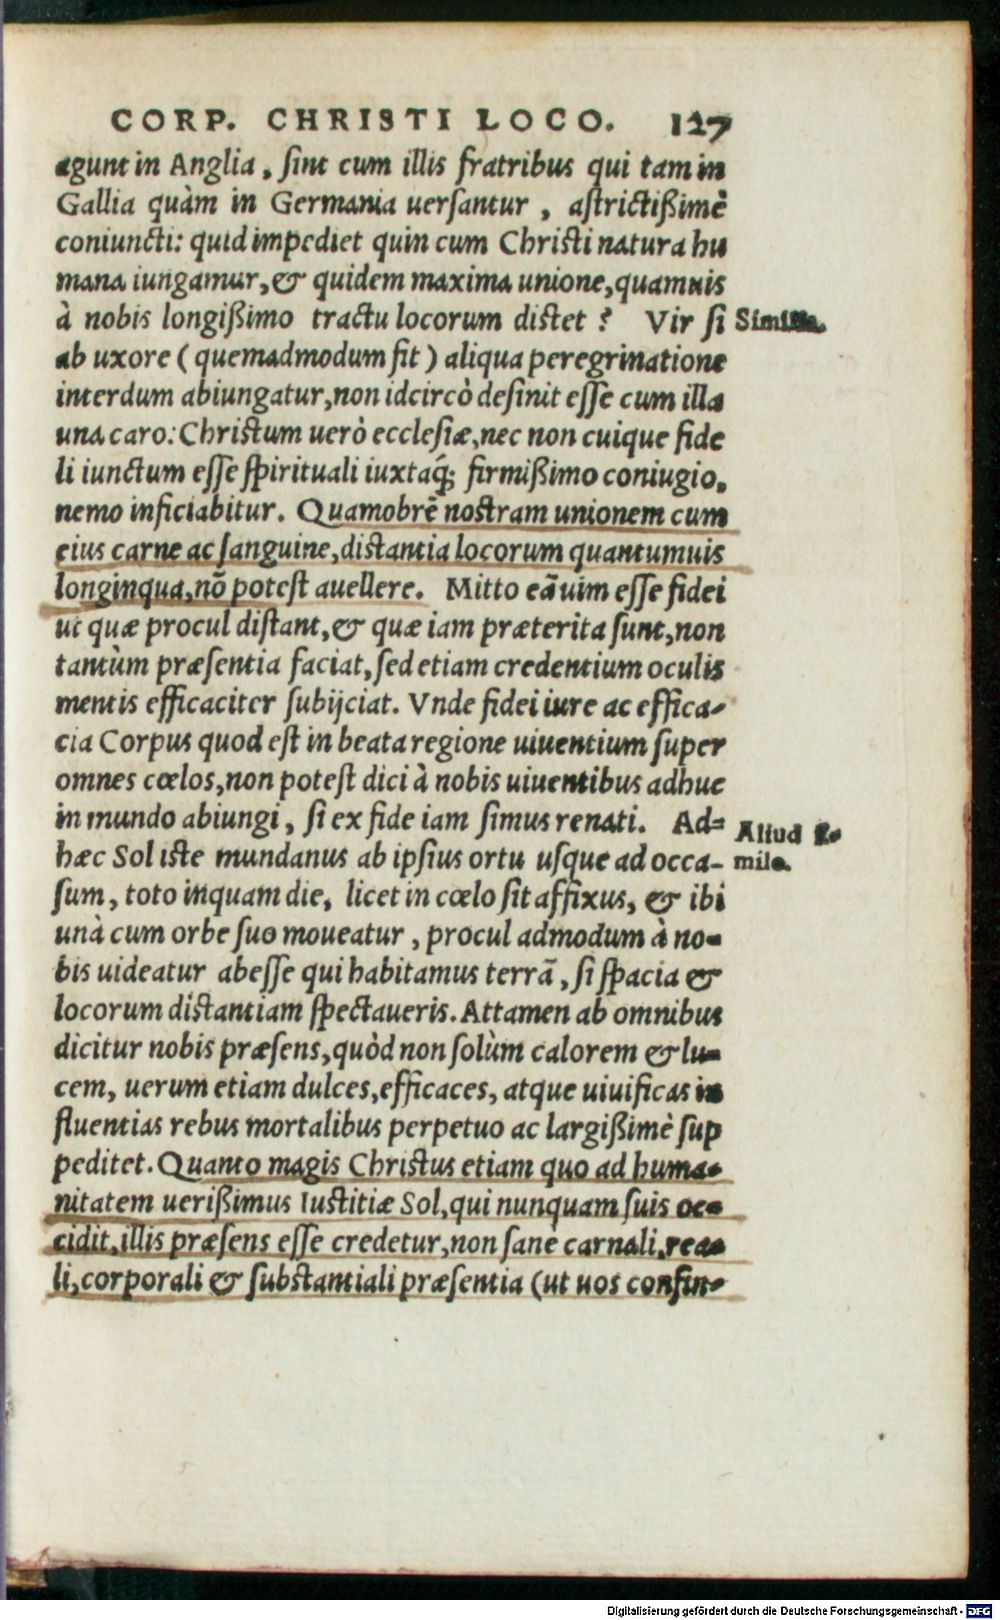 CORP. CHRISTI LOCO. 127
agunt in Anglia, sint cum illis fratribus qui tam in
Gallia quàm in Germania uersantur, astrictißimè
coniuncti: quid impediet quin cum Christi natura hu
mana iungamur, & quidem maxima unione, quamuis
à nobis longißimo tractu locorum distet? Vir si
Simile.
ab uxore (quemadmodum fit) aliqua peregrinatione
interdum abiungatur, non idcircò desinit esse cum illa
una caro: Christum uerò ecclesiæ, nec non cuique fide
li iunctum esse spirituali iuxtaq́; firmißimo coniugio,
nemo inficiabitur. Quamobrẽ nostram unionem cum
eius carne ac sanguine, distantia locorum quantumuis
longinqua, nõ potest auellere. Mitto eã uim esse fidei
ut quæ procul distant, & quæ iam præterita sunt, non
tantùm præsentia faciat, sed etiam credentium oculis
mentis efficaciter subijciat. Vnde fidei iure ac effica-
cia Corpus quod est in beata regione uiuentium super
omnes cœlos, non potest dici à nobis uiuentibus adhuc
in mundo abiungi, si ex fide iam simus renati. Ad-
Aliud si-
hæc Sol iste mundanus ab ipsius ortu usque ad occa-
mile.
sum, toto inquam die, licet in cœlo sit affixus, & ibi
unà cum orbe suo moueatur, procul admodum à no-
bis uideatur abesse qui habitamus terrã, si spacia &
locorum distantiam spectaueris. Attamen ab omnibus
dicitur nobis præsens, quòd non solùm calorem & lu-
cem, uerum etiam dulces, efficaces, atque uiuificas in
fluentias rebus mortalibus perpetuo ac largißimè sup
peditet. Quanto magis Christus etiam quo ad huma-
nitatem uerißimus Iustitiæ Sol, qui nunquam suis oc-
cidit, illis præsens esse credetur, non sane carnali, rea-
li, corporali & substantiali præsentia (ut uos confin-
Digitalisierung gefördert durch die Deutsche Forschungsgemeinschaft - DFG